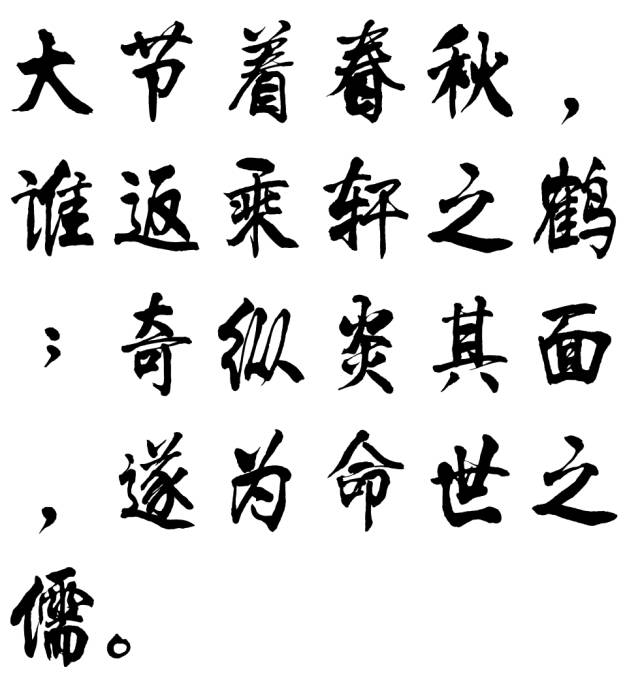 大节着春秋，
谁返乘轩之鹤
；奇纵炎其面
，遂为命世之
儒。